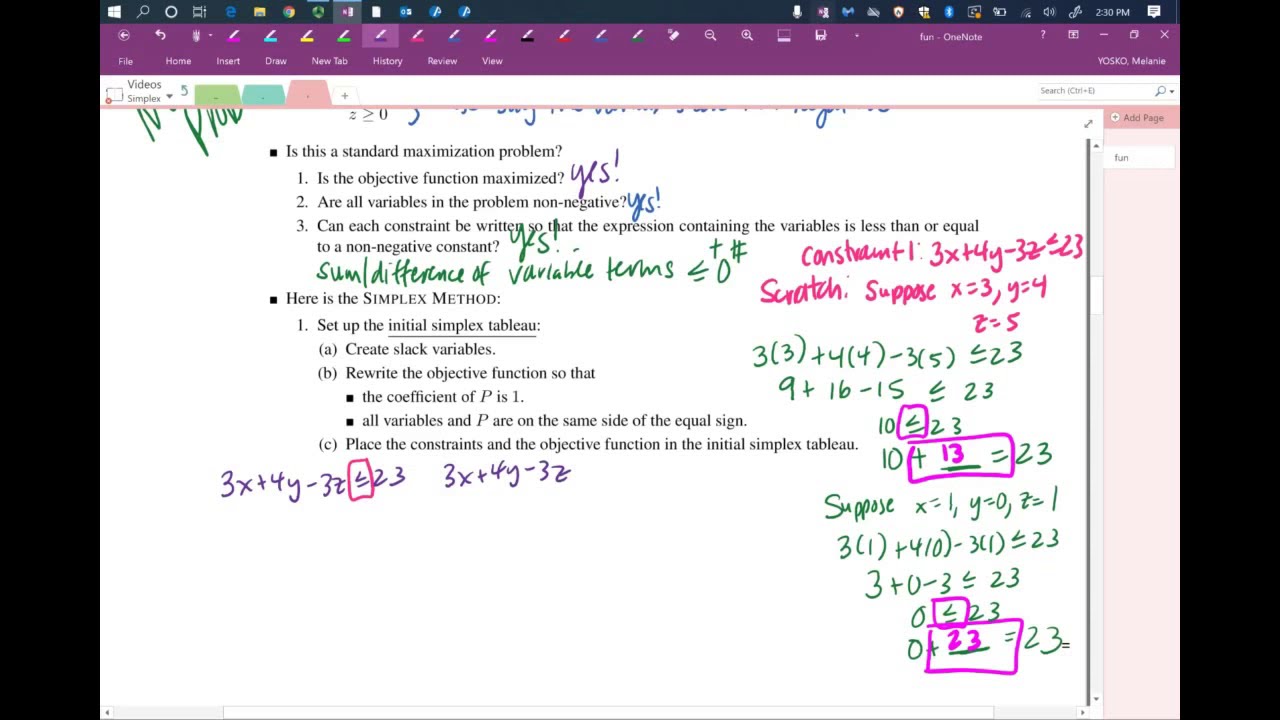 2:30 PM
fun - OneNote
?
YOSKO, Melanie
File Home Insert Draw New Tab History Review View
Videos
Simplex
Search (Ctrl+E)
Add Page
fun
z ≥ 0
■ Is this a standard maximization problem?
1. Is the objective function maximized? yes!
2. Are all variables in the problem non-negative? yes!
3. Can each constraint be written so that the expression containing the variables is less than or equal
to a non-negative constant? yes!
sum/difference of variable terms ≤ 0 + #
■ Here is the SIMPLEX METHOD:
1. Set up the initial simplex tableau:
(a) Create slack variables.
(b) Rewrite the objective function so that
■ the coefficient of P is 1.
■ all variables and P are on the same side of the equal sign.
(c) Place the constraints and the objective function in the initial simplex tableau.
3x+4y-3z ≤ 23 3x+4y-3z
constraint 1: 3x+4y-3z ≤ 23
Scratch: Suppose x=3, y=4
z=5
3(3)+4(4)-3(5) ≤ 23
9+16-15 ≤ 23
10 ≤ 23
10 + 13 = 23
Suppose x=1, y=0, z=1
3(1)+4(0)-3(1) ≤ 23
3+0-3 ≤ 23
0 ≤ 23
0 + 23 = 23